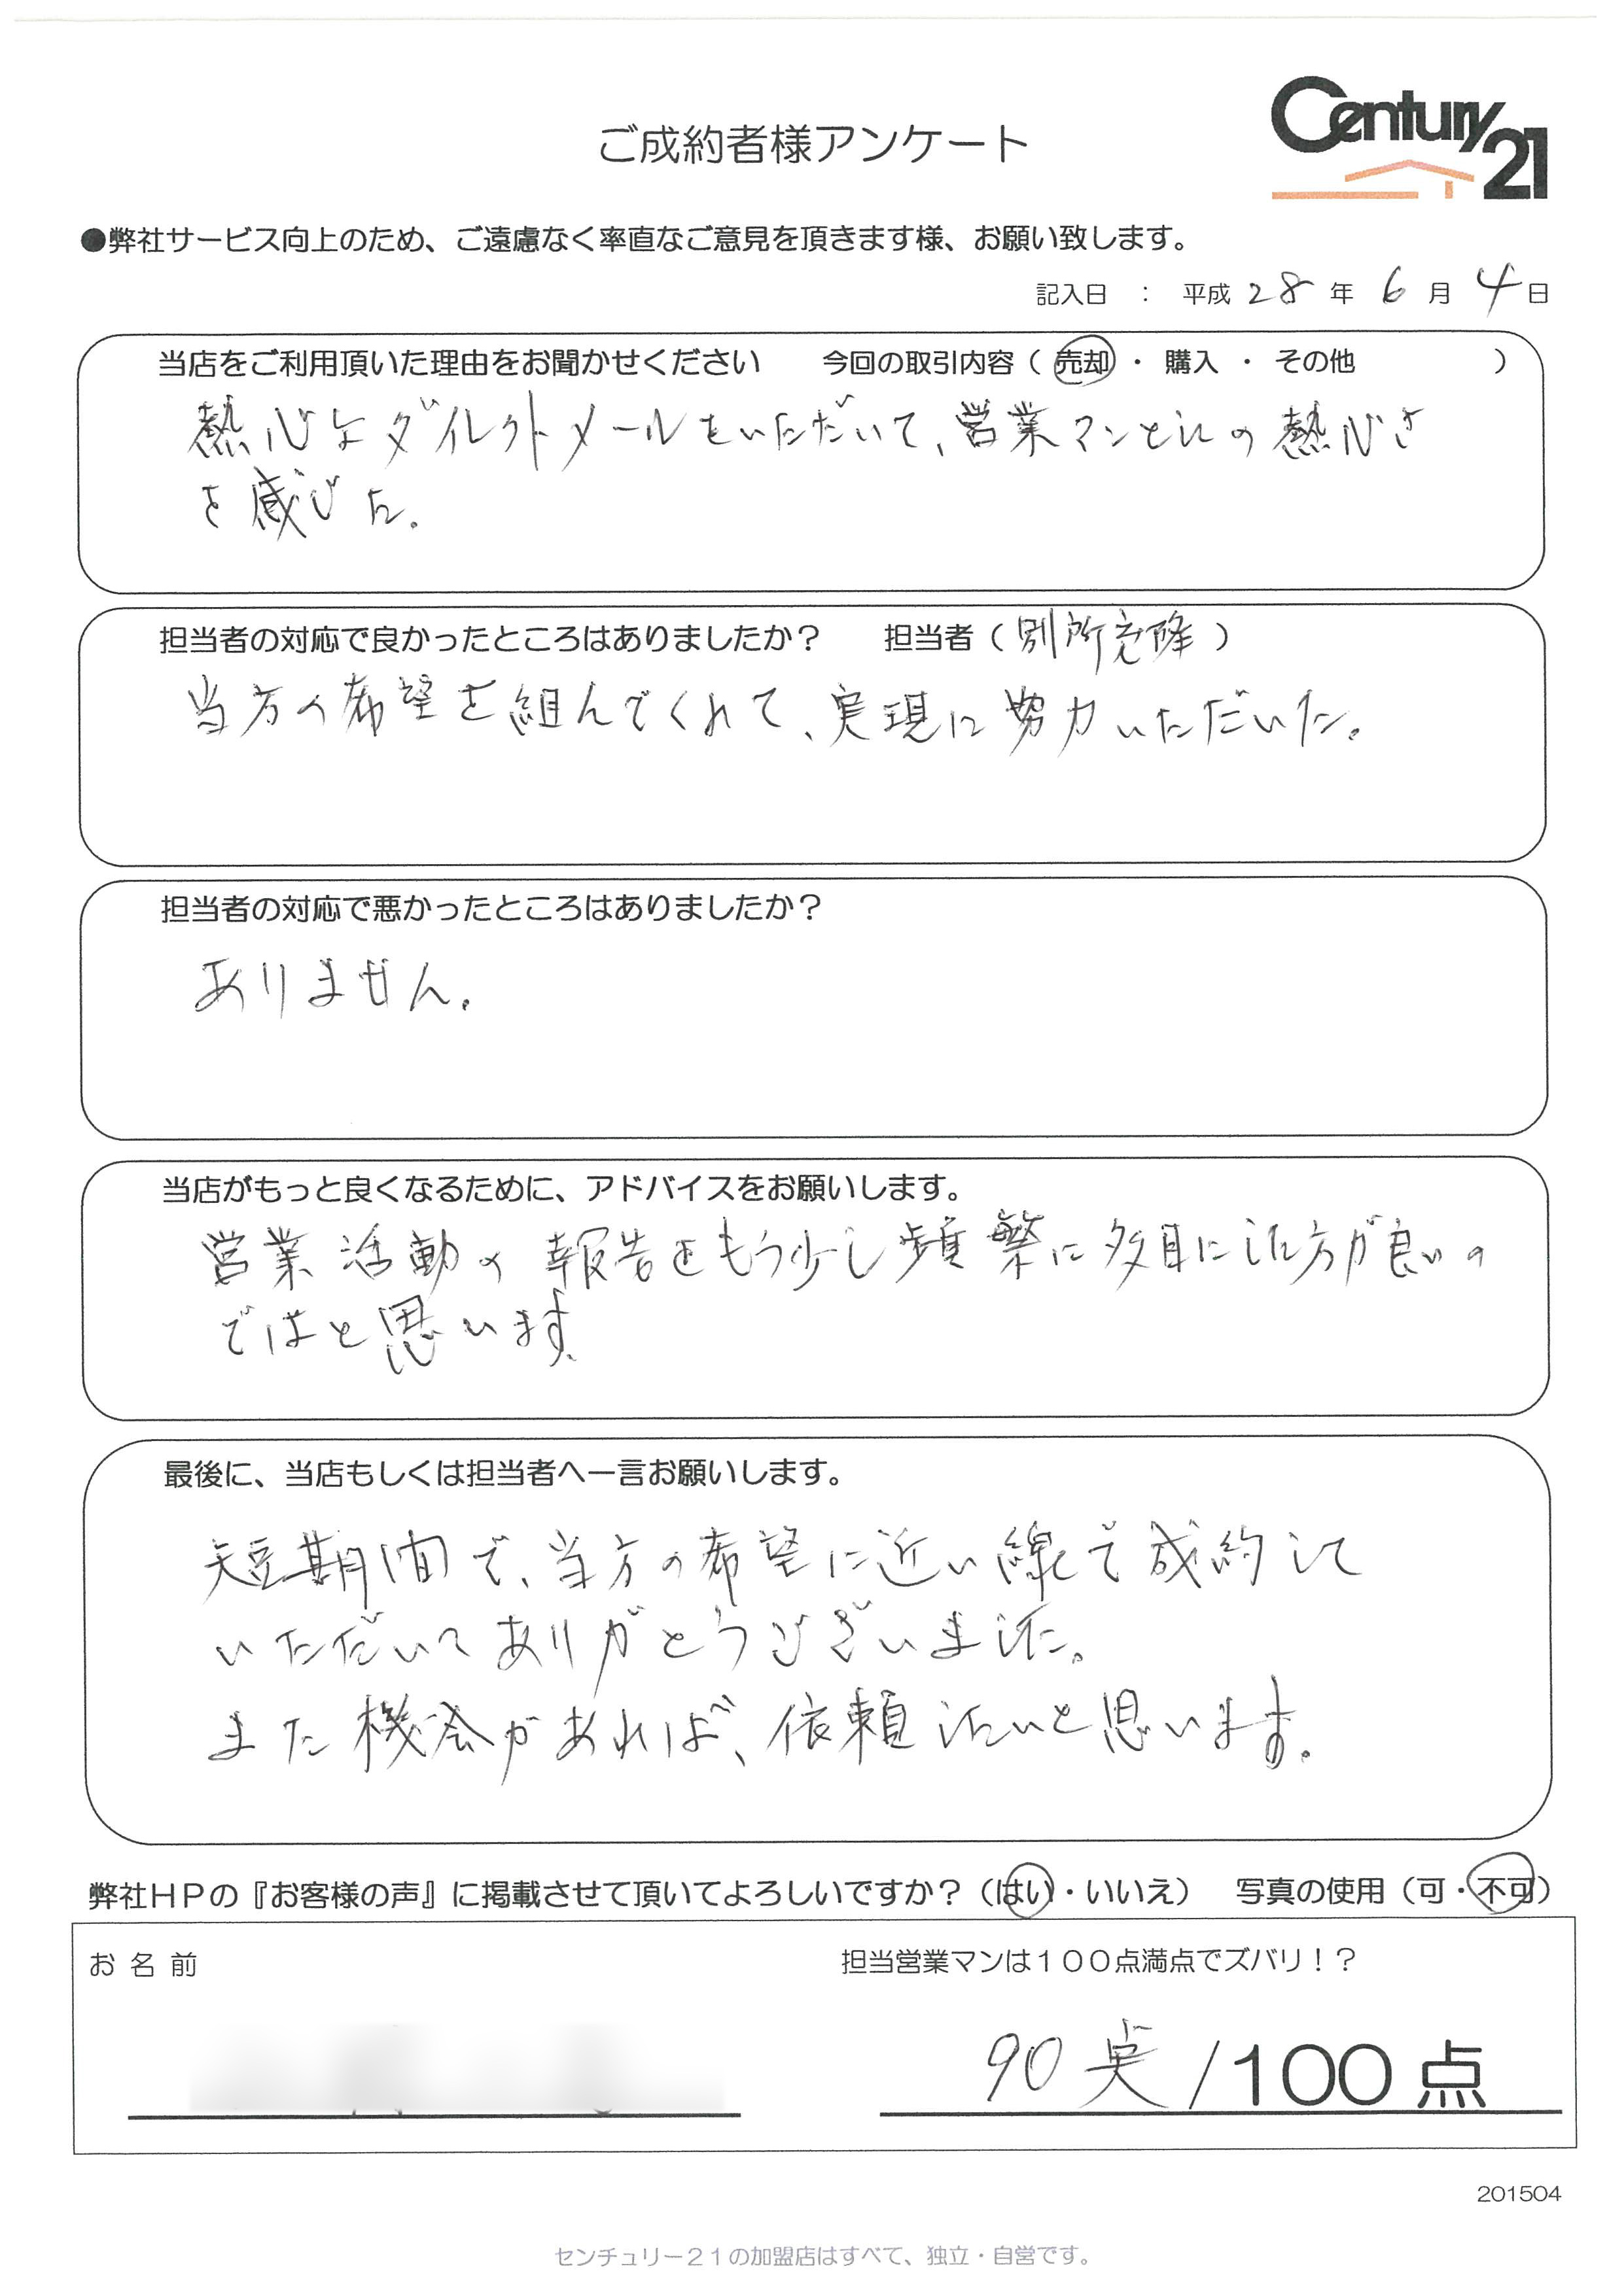 Century 21
ご成約者様アンケート
●弊社サービス向上のため、ご遠慮なく率直なご意見を頂きます様、お願い致します。
記入日 : 平成 28 年 6 月 4 日
当店をご利用頂いた理由をお聞かせください 今回の取引内容（ 売却 ・ 購入 ・ その他 ）
熱心なダイレクトメールをいただいて、営業マンとしての熱心さ
を感じた。
担当者の対応で良かったところはありましたか？ 担当者（ 別所 ）
当方の希望を組んでくれて、実現に努力いただいた。
担当者の対応で悪かったところはありましたか？
ありません。
当店がもっと良くなるために、アドバイスをお願いします。
営業活動の報告をもう少し頻繁に多目にした方が良いの
ではと思います。
最後に、当店もしくは担当者へ一言お願いします。
短期間で、当方の希望に近い線で成約して
いただいてありがとうございました。
また機会があれば、依頼したいと思います。
弊社ＨＰの『お客様の声』に掲載させて頂いてよろしいですか？（はい・いいえ） 写真の使用（可・不可）
お 名 前 担当営業マンは１００点満点でズバリ！？
90点 /100 点
201504
センチュリー２１の加盟店はすべて、独立・自営です。